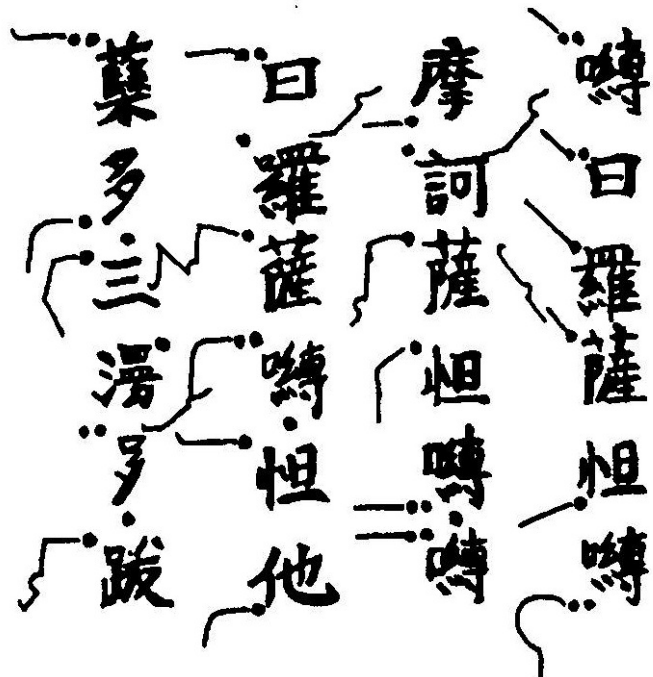 嚩日羅薩怛嚩
摩訶薩怛嚩嚩
日羅薩嚩怛他
蘖多三漫多跋